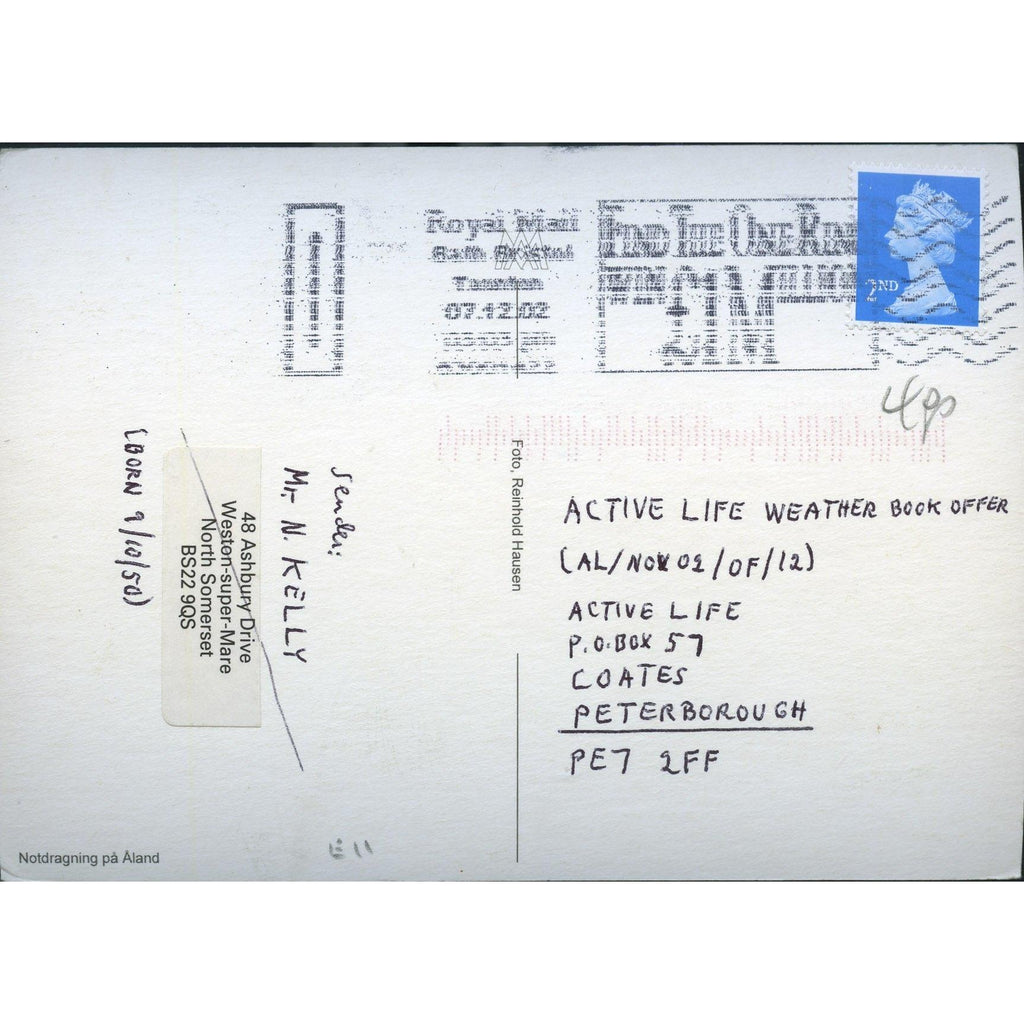 Royal Mail
07.12.02
FIND THE ONE RING
£1M
2ND
4p
Foto, Reinhold Hausen
ACTIVE LIFE WEATHER BOOK OFFER
(AL/NOV02/OF/12)
ACTIVE LIFE
P.O.BOX 57
COATES
PETERBOROUGH
PE7 2FF
Sender:
Mr N. KELLY
48 Ashbury Drive
Weston-super-Mare
North Somerset
BS22 9QS
(BORN 9/10/50)
Notdragning på Åland
E11